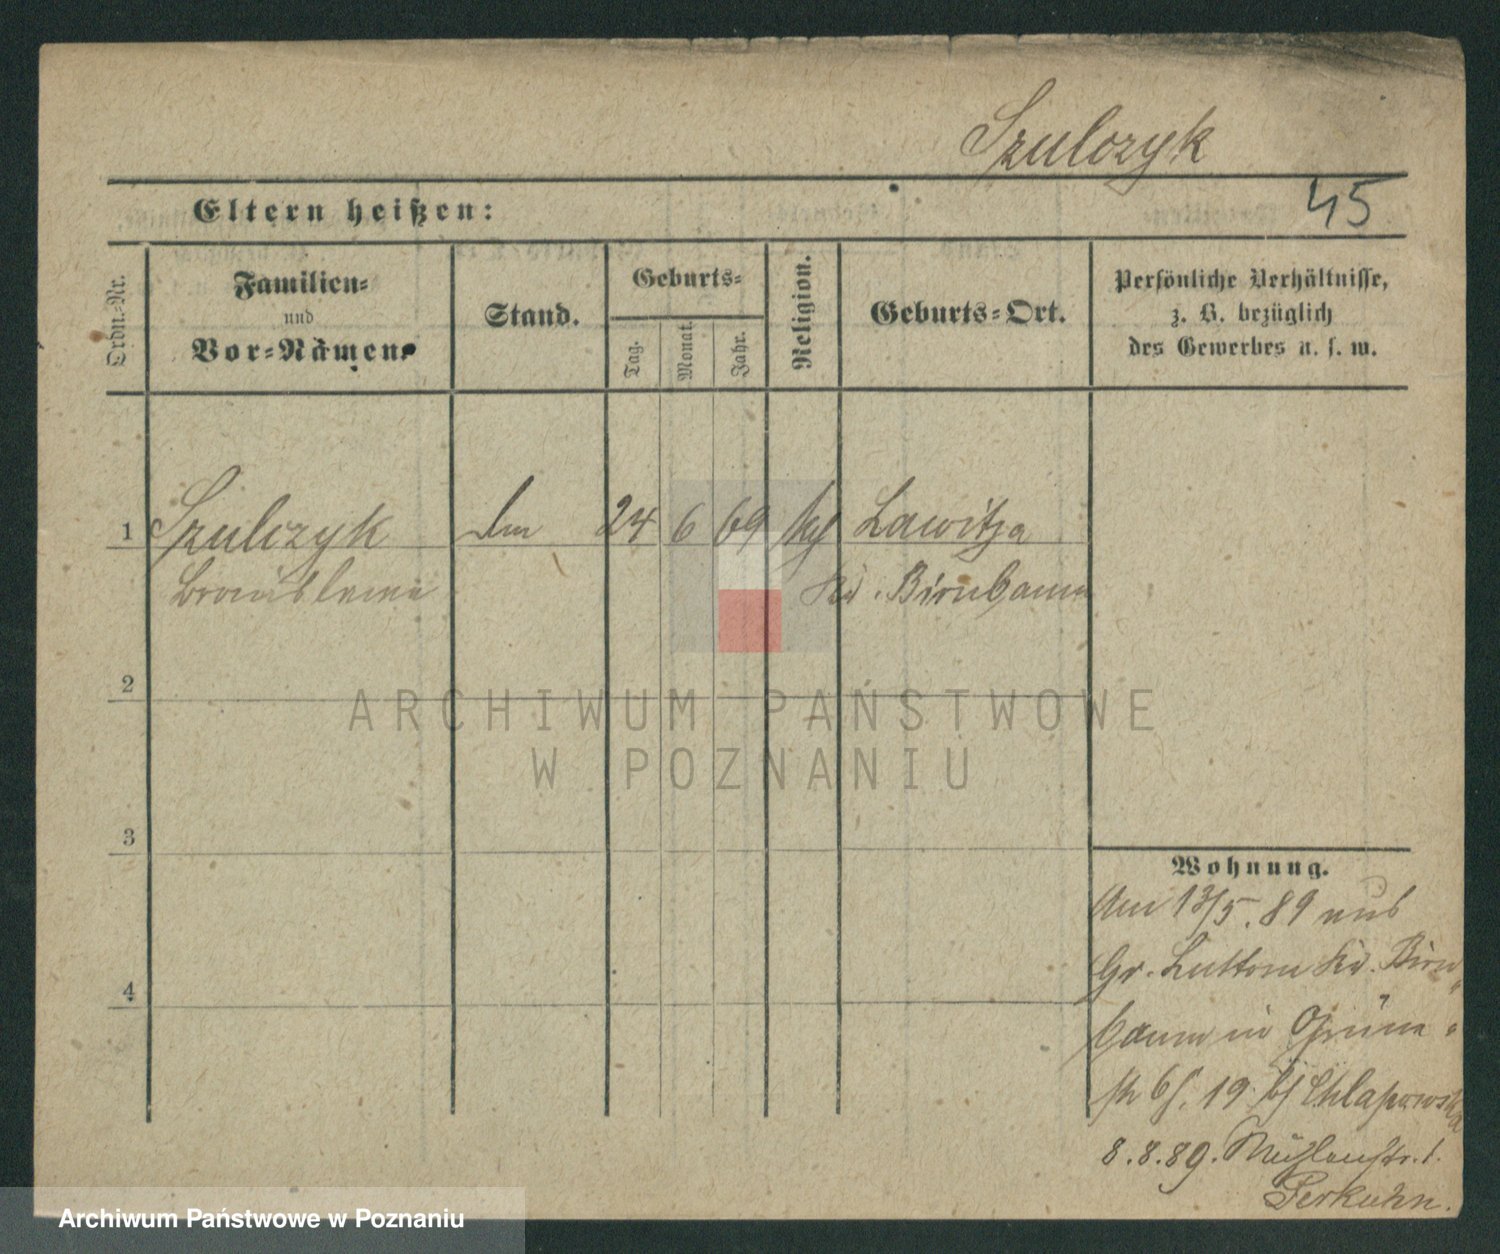 Szulczyk
45
Eltern heißen:
Ordn.-Nr.
Familien-
und
Vor-Namen.
Stand.
Geburts-
Tag.
Monat.
Jahr.
Religion.
Geburts-Ort.
Persönliche Verhältnisse,
z. B. bezüglich
des Gewerbes u. s. w.
1 Szulczyk 24 6 69 Lawitza
Bronislawa Kr. Birnbaum
2
ARCHIWUM PAŃSTWOWE
W POZNANIU
3
4
Wohnung.
Am 13/5. 89 aus
Gr. Luttom Kr. Birn-
baum in Grüne-
19. Chlapowska
8.8.89. Mühlenstr. 1.
Perkuhn.
Archiwum Państwowe w Poznaniu